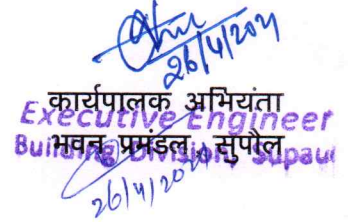 26/4/2021
कार्यपालक अभियंता
Executive Engineer
भवन प्रमंडल, सुपौल
Building Division, Supaul
26/4/2021